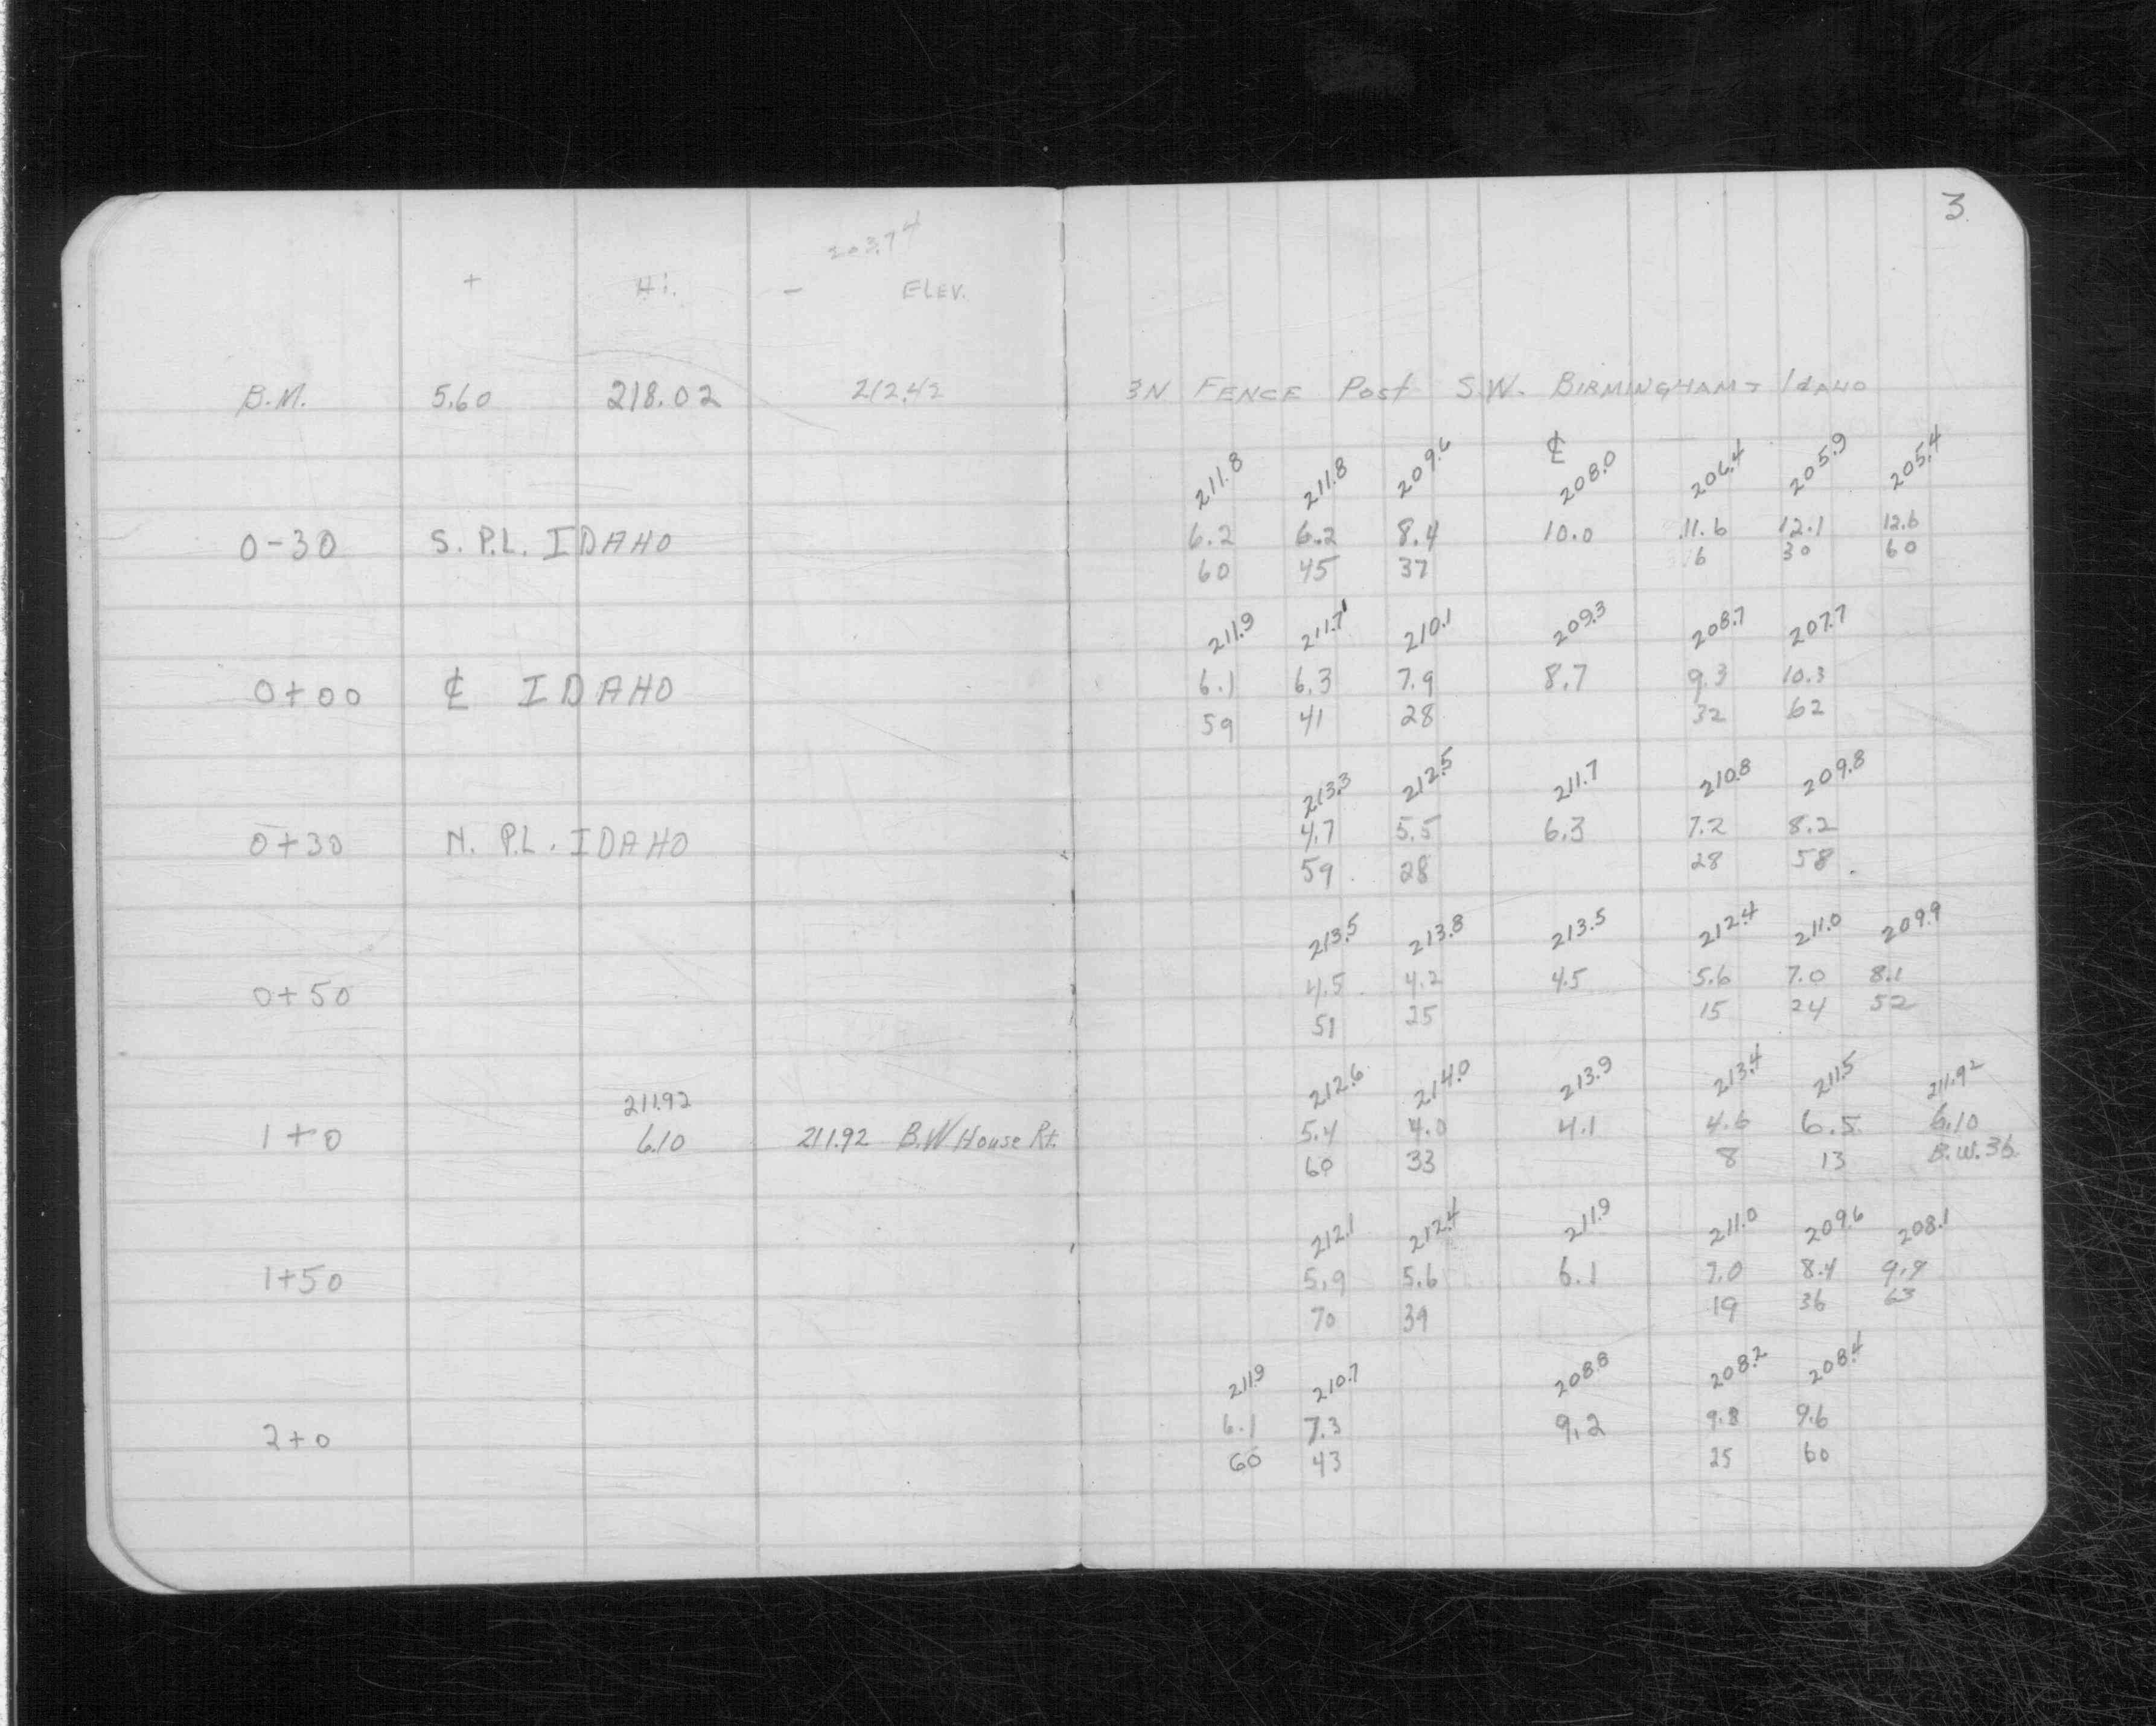 3
203.74
+ Hi. - ELEV.
B.M. 5.60 218.02 212.42 3N FENCE Post S.W. BIRMINGHAM & IDAHO
℄
211.8 211.8 209.6 208.0 206.4 205.9 205.4
0-30 S. P.L. IDAHO 6.2 6.2 8.4 10.0 11.6 12.1 12.6
60 45 37 16 30 60
211.9 211.7 210.1 209.3 208.7 207.7
0+00 ℄ IDAHO 6.1 6.3 7.9 8.7 9.3 10.3
59 41 28 32 62
213.3 212.5 211.7 210.8 209.8
0+30 N. P.L. IDAHO 4.7 5.5 6.3 7.2 8.2
59 28 28 58
213.5 213.8 213.5 212.4 211.0 209.9
0+50 4.5 4.2 4.5 5.6 7.0 8.1
51 25 15 24 52
212.6 214.0 213.9 213.4 211.5 211.92
211.92
1+0 6.10 211.92 B.W House Rt. 5.4 4.0 4.1 4.6 6.5 6.10
60 33 8 13 B.W. 36
212.1 212.4 211.9 211.0 209.6 208.1
1+50 5.9 5.6 6.1 7.0 8.4 9.9
70 39 19 36 63
211.9 210.7 208.8 208.2 208.4
2+0 6.1 7.3 9.2 9.8 9.6
60 43 25 60